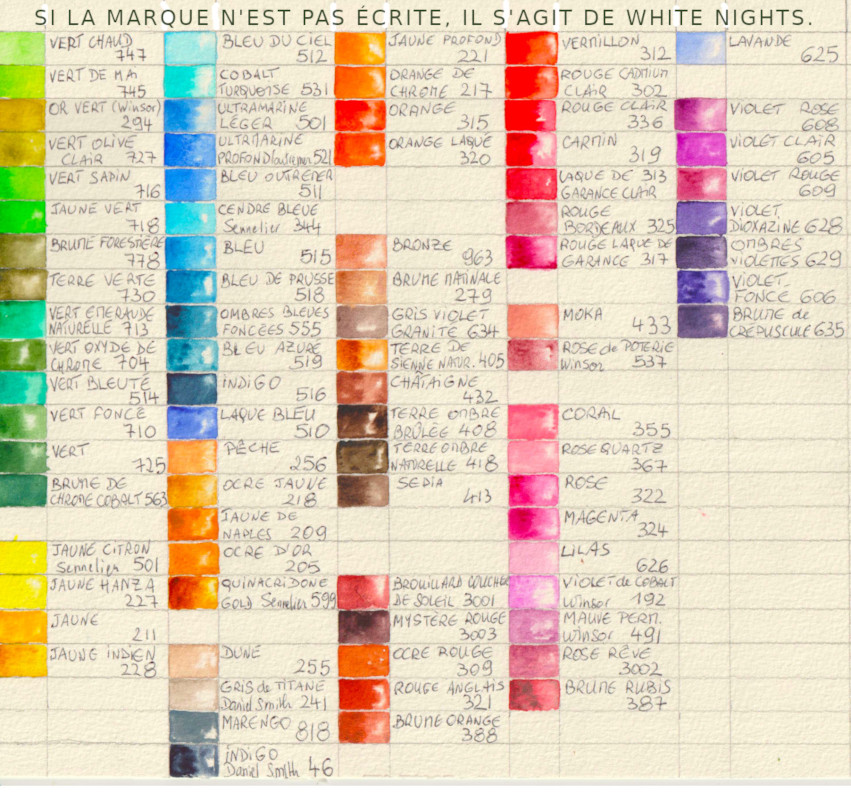 SI LA MARQUE N'EST PAS ÉCRITE, IL S'AGIT DE WHITE NIGHTS.
VERT CHAUD
747
VERT DE MAI
745
OR VERT (Winsor)
294
VERT OLIVE
CLAIR 727
VERT SAPIN
716
JAUNE VERT
718
BRUME FORESTIÈRE
778
TERRE VERTE
730
VERT EMERAUDE
NATURELLE 713
VERT OXYDE DE
CHROME 704
VERT BLEUTÉ
514
VERT FONCÉ
710
VERT
725
BRUME DE
CHROME COBALT 563
JAUNE CITRON
Sennelier 501
JAUNE HANZA
227
JAUNE
211
JAUNE INDIEN
228
BLEU DU CIEL
512
COBALT
TURQUOISE 531
ULTRAMARINE
LÉGER 501
ULTRAMARINE
PROFOND 521
BLEU OUTREMER
511
CENDRE BLEUE
Sennelier 344
BLEU
515
BLEU DE PRUSSE
518
OMBRES BLEUES
FONCÉES 555
BLEU AZURÉ
519
INDIGO
516
LAQUE BLEU
510
PÊCHE
256
OCRE JAUNE
218
JAUNE DE
NAPLES 209
OCRE D'OR
205
QUINACRIDONE
GOLD Sennelier 599
DUNE
255
GRIS de TITANE
Daniel Smith 241
MARENGO 818
INDIGO
Daniel Smith 46
JAUNE PROFOND
221
ORANGE DE
CHROME 217
ORANGE
315
ORANGE LAQUE
320
BRONZE
963
BRUME MATINALE
279
GRIS VIOLET
GRANITE 634
TERRE DE
SIENNE NATUR. 405
CHÂTAIGNE
432
TERRE OMBRE
BRÛLÉE 408
TERRE OMBRE
NATURELLE 418
SEPIA
413
BROUILLARD COUCHER
DE SOLEIL 3001
MYSTÈRE ROUGE
3003
OCRE ROUGE
309
ROUGE ANGLAIS
321
BRUME ORANGE
388
VERMILLON
312
ROUGE CADMIUM
CLAIR 302
ROUGE CLAIR
336
CARMIN
319
LAQUE DE 313
GARANCE CLAIR
ROUGE
BORDEAUX 325
ROUGE LAQUE DE
GARANCE 317
MOKA
433
ROSE de POTERIE
Winsor 537
CORAL
355
ROSE QUARTZ
367
ROSE
322
MAGENTA
324
LILAS
626
VIOLET de COBALT
Winsor 192
MAUVE PERM.
Winsor 491
ROSE RÊVE
3002
BRUME RUBIS
387
LAVANDE
625
VIOLET ROSE
608
VIOLET CLAIR
605
VIOLET ROUGE
609
VIOLET
DIOXAZINE 628
OMBRES
VIOLETTES 629
VIOLET
FONCÉ 606
BRUME de
CRÉPUSCULE 635